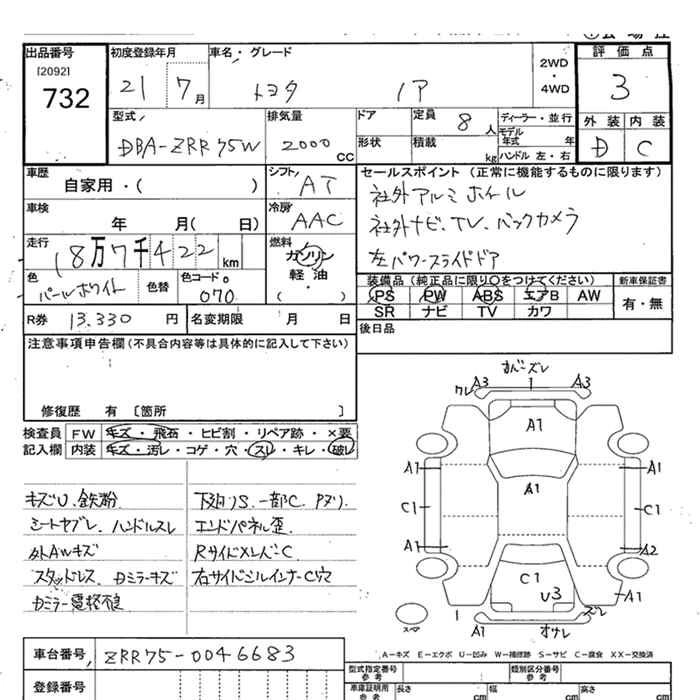 出品番号
[2092]
732
初度登録年月
21 7月
車名・グレード
トヨタ ノア
2WD
・
4WD
評価点
3
型式
DBA-ZRR75W
排気量
2000 CC
ドア
形状
定員 8人
積載 kg
ディーラー・並行
モデル年式 年
ハンドル 左・右
外装 内装
D C
車歴
自家用・( )
シフト
AT
車検
年 月( 日)
冷房
AAC
走行
18万7千422km
燃料
ガソリン
軽油
( ・ )
色
パールホワイト
色替
色コードNo
070
R券 13.330 円
名変期限 月 日
セールスポイント (正常に機能するものに限ります)
社外アルミホイール
社外ナビ、TV、バックカメラ
左パワースライドドア
装備品(純正品に限り〇をつけてください)
新車保証書
PS PW ABS エアB AW
SR ナビ TV カワ
有・無
後日品
注意事項申告欄(不具合内容等は具体的に記入して下さい)
修復歴 有 〔箇所 〕
検査員 FW キズ・飛石・ヒビ割・リペア跡・×要
記入欄 内装 キズ・汚レ・コゲ・穴・スレ・キレ・破レ
キズU、鉄粉
シートヤブレ、ハンドルスレ
外AWキズ
スタッドレス、ドアミラーキズ
ドアミラー電格不良
下廻りS、一部C、Pヌリ
エンドパネル歪
RサイドメンバーC
右サイドシルインナーC穴
すバンズレ
クレ A3 1 A3
A1
A1
A1 A1
C1 C1
A1 A2
C1
U3
ズレ
A1
1
A1
オサレ
スペア
A-キズ E-エクボ U-凹み W-補修跡 S-サビ C-腐食 XX-交換済
車台番号 ZRR75-0046683
登録番号
型式指定番号
参考
類別区分番号
参考
車庫証明用
参考
長さ cm
幅 cm
高さ cm